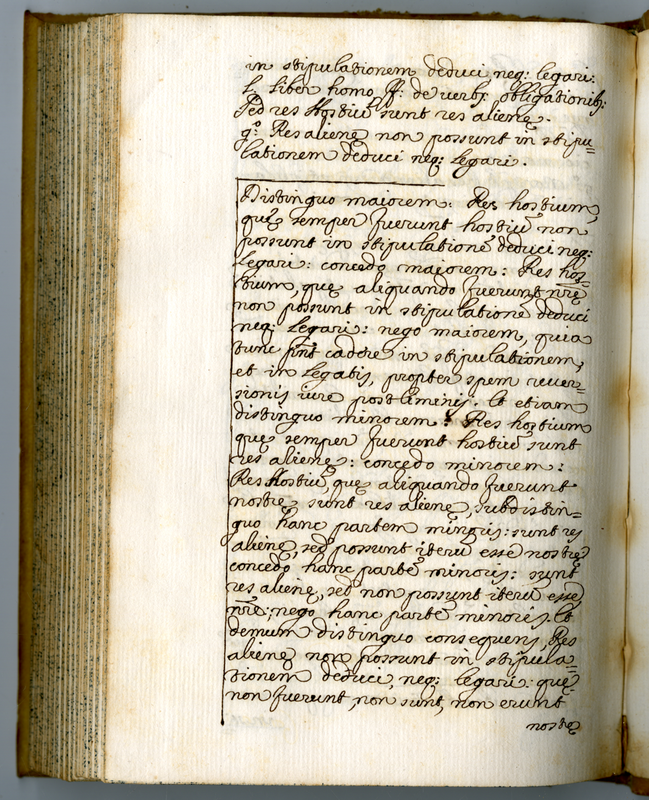 in stipulationem deduci, neq: legari:
l. liber homo ff: de verb: obligationib:
Sed res hostiũ sunt res alienę.
gº. Res alienę non possunt in stipu=
lationem deduci neq: legari.
Distinguo maiorem: Res hostium,
quę semper fuerunt hostiũ non
possunt in stipulationẽ deduci neq:
legari: concedo maiorem: Res hos=
tium, quę aliquando fuerunt nr̃ę
non possunt in stipulationẽ deduci
neq: legari: nego maiorem, quia
tunc pñt cadere in stipulationem,
et in legatis, propter spem rever=
sionis iure postliminij. Et etiam
distinguo minorem: Res hostium
quę semper fuerunt hostiũ sunt
res alienę: concedo minorem:
Res hostiũ, quę aliquando fuerunt
nostrę sunt res alienę, subdistin=
guo hanc partem minoris: sunt res
alienę, sed possunt iterũ esse nostrę
concedo hanc partẽ minoris: sunt
res alienę, sed non possunt iterũ esse
nr̃ę; nego hanc partẽ minoris. Et
demum distinguo consequens, Res
alienę non possunt in stipula=
tionem deduci, neq: legari: quę
non fuerunt, non sunt, non erunt
nostrę